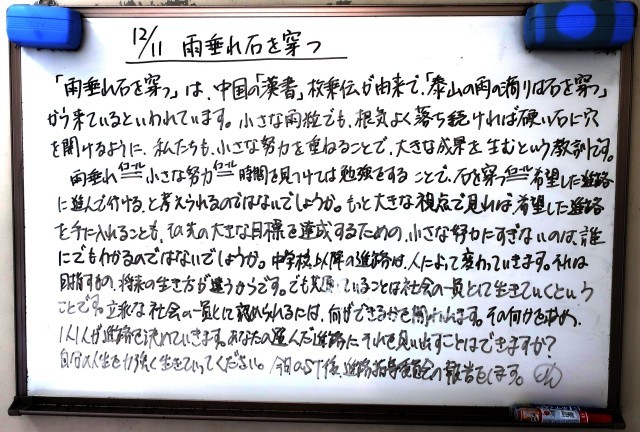 12/11 雨垂れ石を穿つ
「雨垂れ石を穿つ」は、中国の「漢書」枚乗伝が由来で、「泰山の雨の滴りは石を穿つ」
から来ているといわれています。小さな雨粒でも、根気よく落ち続ければ硬い石に穴
を開けるように、私たちも、小さな努力を重ねることで、大きな成果を生むという教訓です。
雨垂れ イコール 小さな努力 イコール 時間を見つけては勉強をすることで、石を穿つ イコール 希望した進路
に進んで行ける、と考えられるのではないでしょうか。もっと大きな視点で見れば、希望した進路
を手に入れることも、その先の大きな目標を達成するための、小さな努力にすぎないのは、誰
にでもわかるのではないでしょうか。中学校以降の進路は、人によって変わっていきます。それは
目指すもの、将来の生き方が違うからです。でも共通していることは社会の一員として生きていくという
ことです。立派な社会の一員として認められるには、何ができるかを問われます。その何かを求め、
1人1人が進路を決めていきます。あなたの選んだ進路に それを見い出すことはできますか?
自分の人生を力強く生きていってください。今日のST後、進路指導委員会の報告をします。